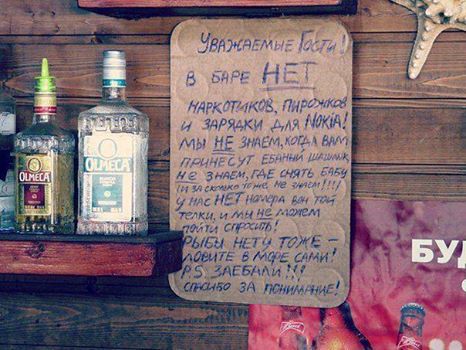 Уважаемые Гости!
В баре НЕТ
наркотиков, пирожков
и зарядки для Nokia!
Мы НЕ знаем, когда вам
принесут ебаный шашлык,
не знаем, где снять бабу
(и за сколько тоже не знаем!!!)
У нас НЕТ номера вон той
телки, и мы не можем
пойти спросить!
Рыбы нету тоже –
ловите в море сами!
P.S. Заебали!!!
Спасибо за понимание!
OLMECA
OLMECA
БУД